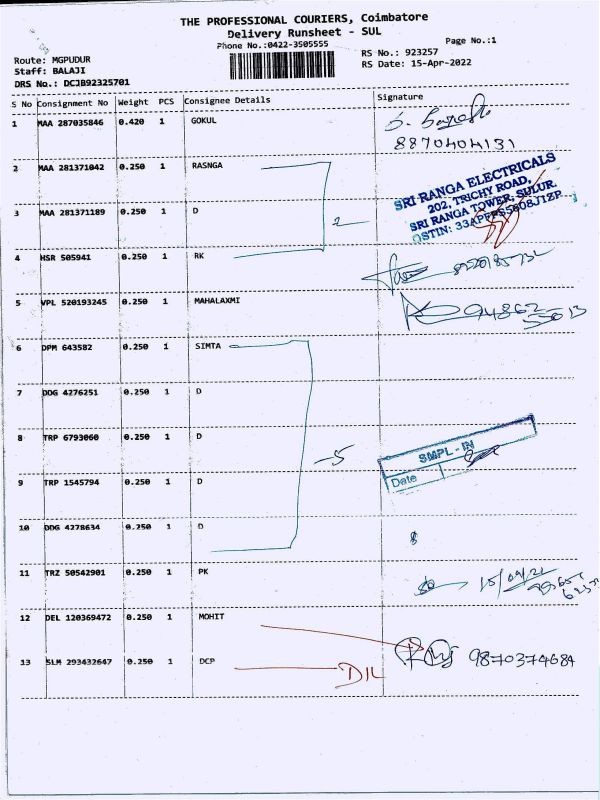 THE PROFESSIONAL COURIERS, Coimbatore
Delivery Runsheet - SUL
Phone No.:0422-3505555
Page No.:1
Route: MGPUDUR
Staff: BALAJI
DRS No.: DCJB92325701
RS No.: 923257
RS Date: 15-Apr-2022
S No Consignment No Weight PCS Consignee Details Signature
1 MAA 287035846 0.420 1 GOKUL
8870404131
2 MAA 281371042 0.250 1 RASNGA
SRI RANGA ELECTRICALS
202, TRICHY ROAD,
SRI RANGA TOWER, SULUR.
3 MAA 281371189 0.250 1 D 2
4 HSR 505941 0.250 1 RK
5 VPL 520193245 0.250 1 MAHALAXMI
6 DPM 643582 0.250 1 SIMTA
7 DDG 4276251 0.250 1 D
8 TRP 6793060 0.250 1 D
5
SMPL - IN
Date
9 TRP 1545794 0.250 1 D
10 DDG 4278634 0.250 1 D
11 TRZ 50542901 0.250 1 PK
12 DEL 120369472 0.250 1 MOHIT
13 SLM 293432647 0.250 1 DCP
9870374684
DIL